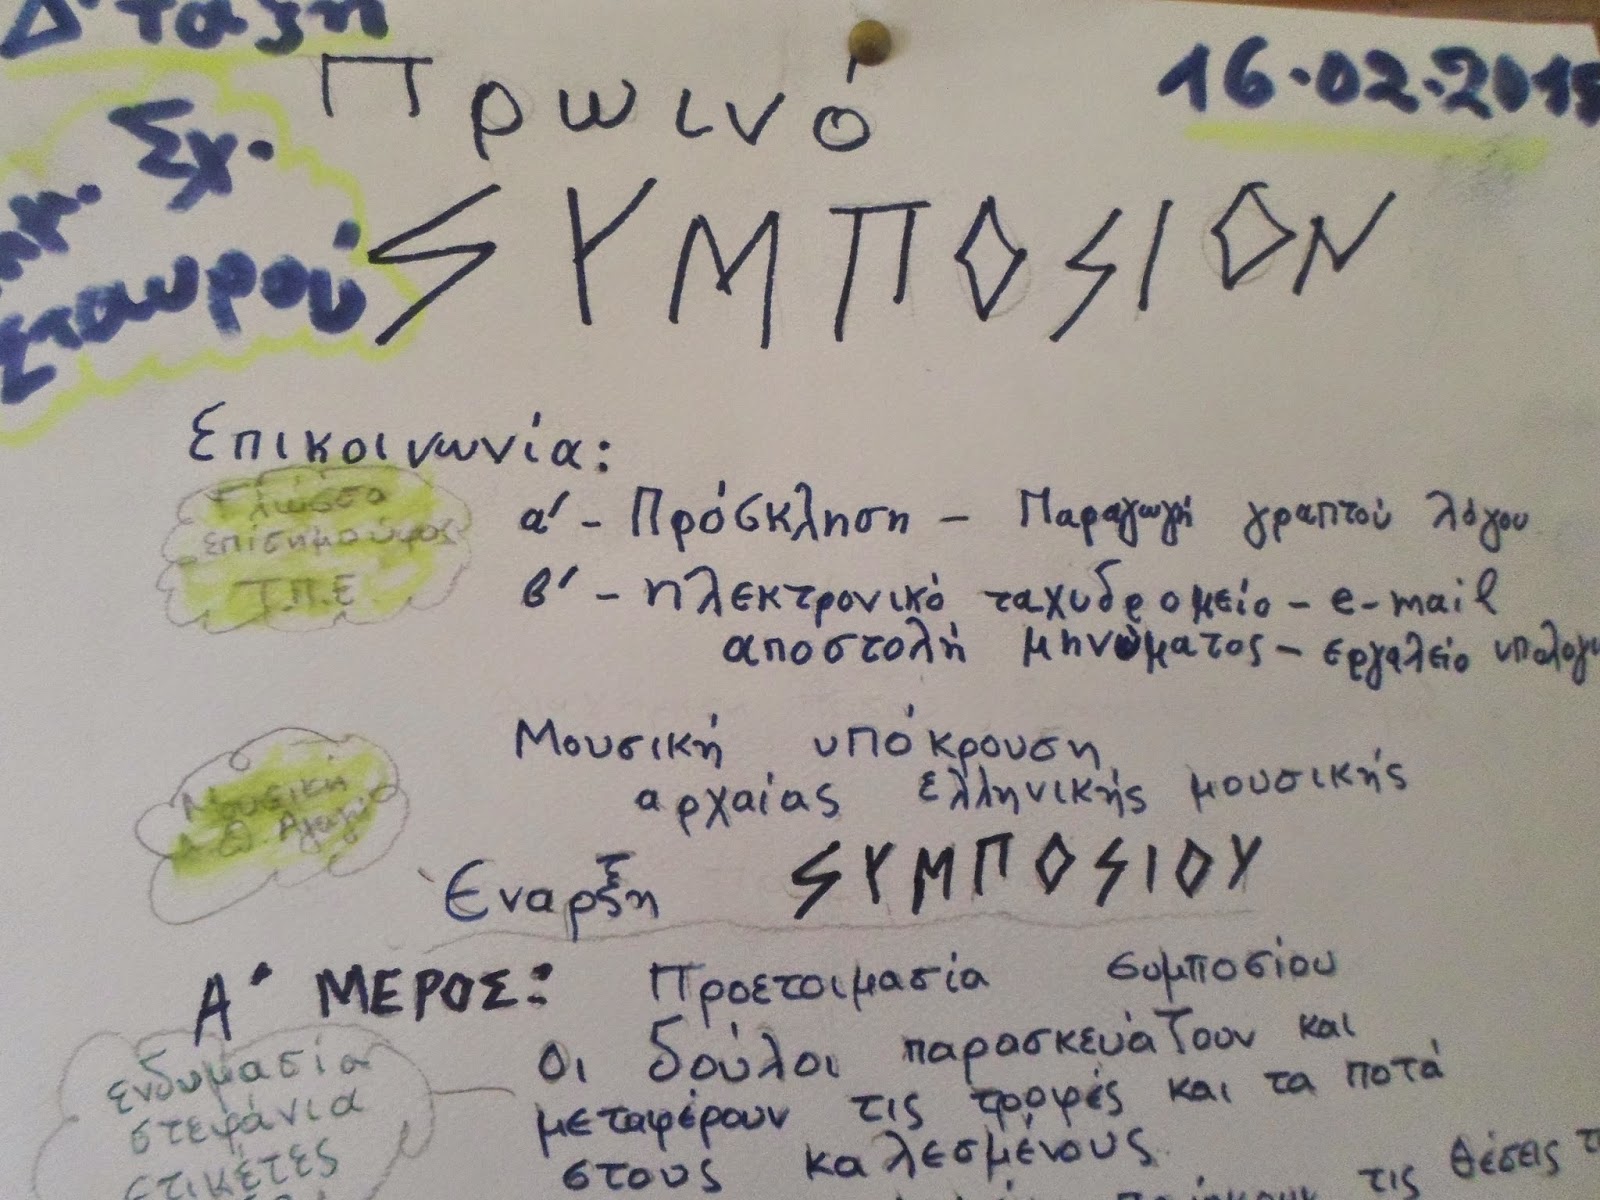 Δ' τάξη
Πρωινό
16.02.2015
Σχ.
Σταυρού
SYMΠOSION
Επικοινωνία:
Γλώσσα
Τ.Π.Ε
α' - Πρόσκληση - Παραγωγή γραπτού λόγου
β' - ηλεκτρονικό ταχυδρομείο - e-mail
αποστολή μηνύματος - εργαλείο υπολογι
Μουσική υπόκρουση
αρχαίας ελληνικής μουσικής
Μουσική
Έναρξη SYMΠOSIOY
Α' ΜΕΡΟΣ: Προετοιμασία συμποσίου
ενδυμασία
στεφάνια
ετικέτες
Οι δούλοι παρασκευάζουν και
μεταφέρουν τις τροφές και τα ποτά
στους καλεσμένους
τις θέσεις τ